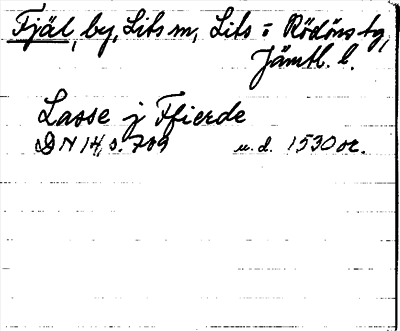 Fjäl, by, Lits sn, Lits o Rödöns tg,
Jämtl. l.
Lasse j Ffierde
DN 14, s. 709 u. d. 1530 oc.